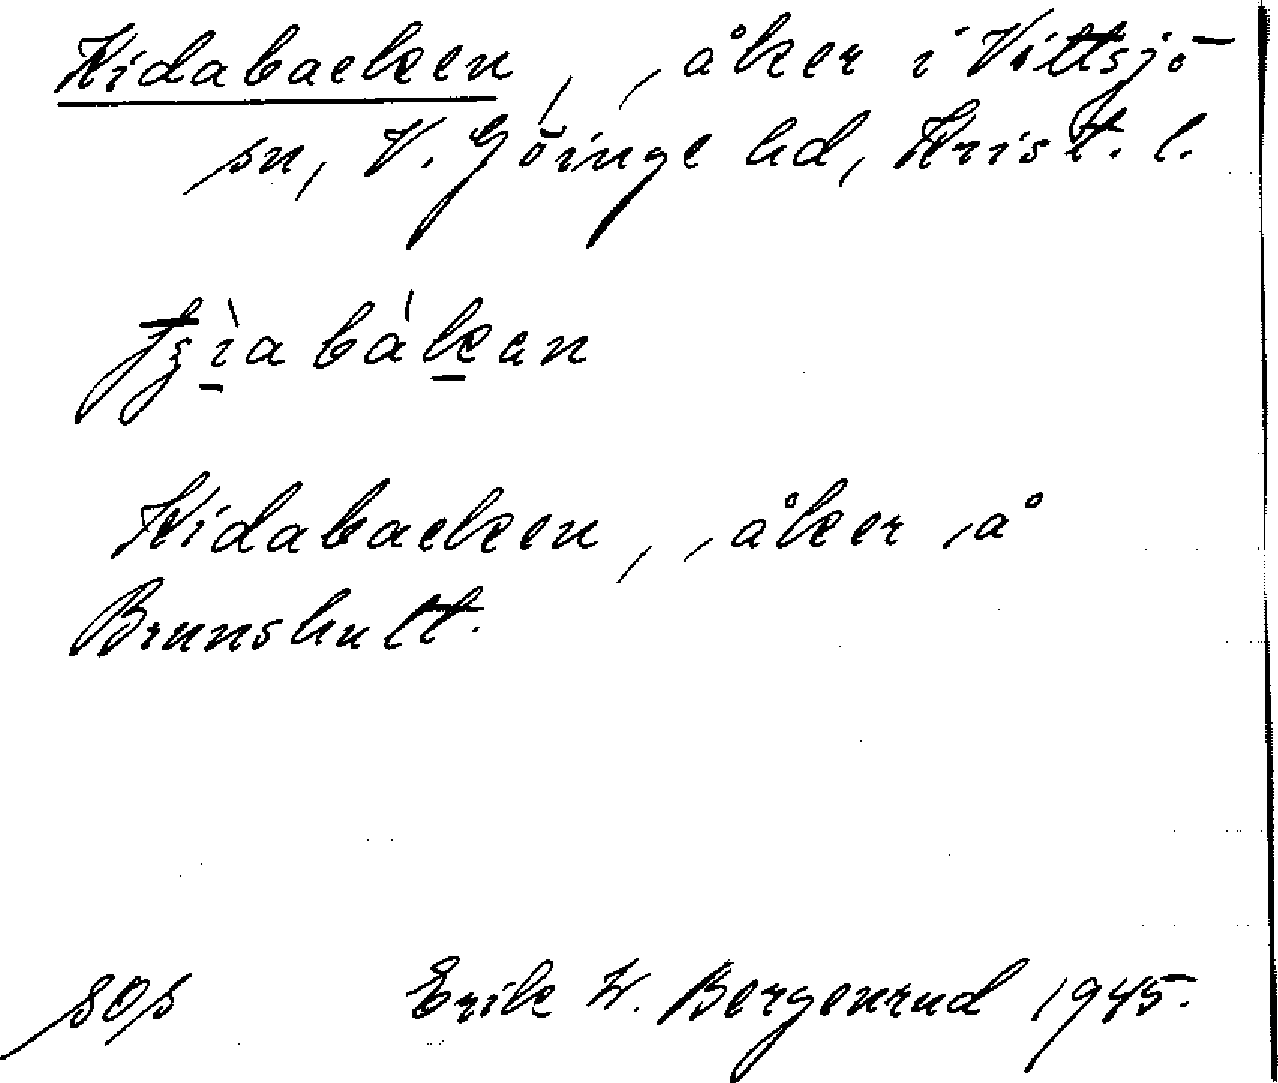 Kidabacken, , åker i Vittsjö
sn, V. Göinge hd, Krist. l.
Kidabacken, , åker å
Brunshult.
Erik W. Bergenrud 1945.